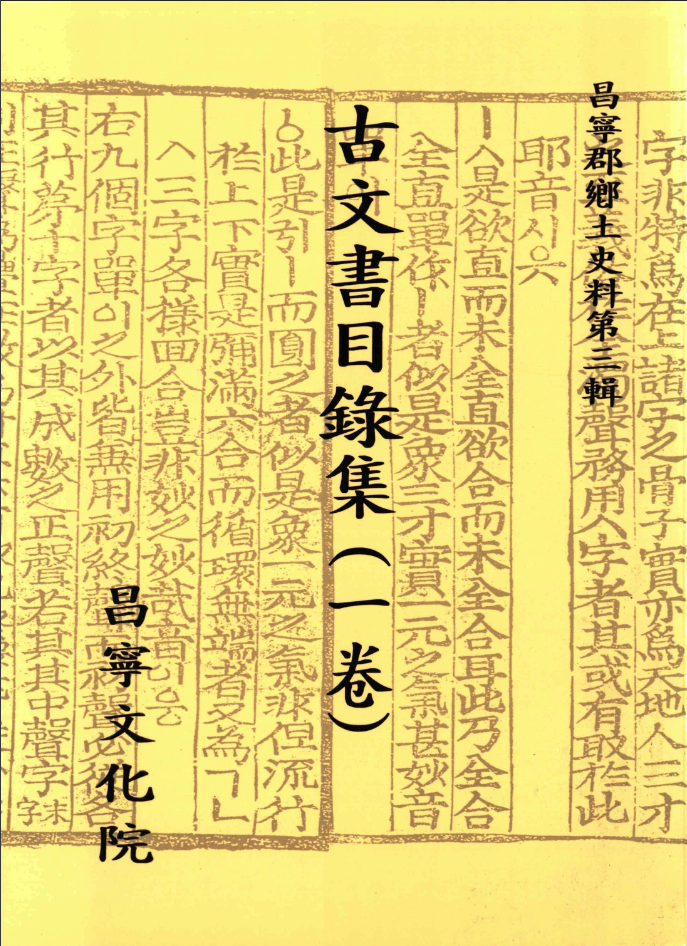 昌寧郡鄕土史料第三輯
古文書目錄集(一卷)
昌寧文化院
字非特爲在上諸字之骨子實亦爲天地人三才
聲務用八字者其或有取於此
耶音시욧
ㅣㅅ是欲直而未全直欲合而未全合耳此乃全合
全直單作ㅣ者似是象三才實一元之氣甚妙音
此是引ㅣ而圓之者似是象一元之氣非但流行
於上下實是彌滿六合而循環無端者又為ㄱㄴ
ㅅ三字各樣回合豈非妙之妙哉
右九個字單이之外皆無用初終聲
其行夢干字者以其成數之正聲若其其中聲字